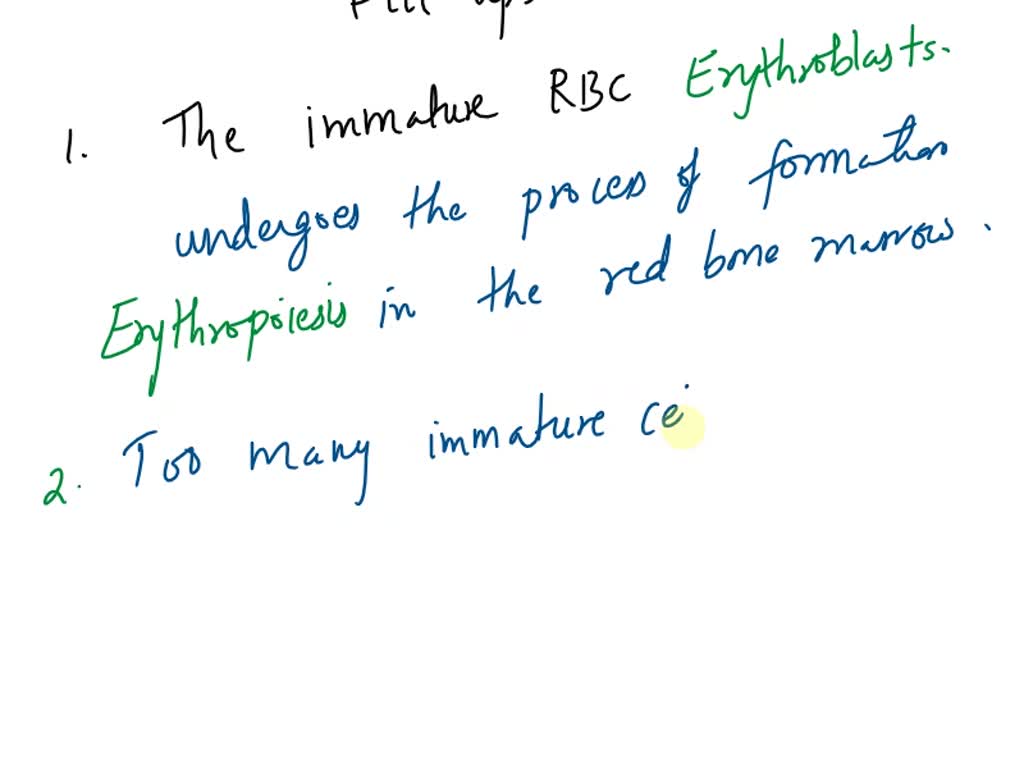 Fill ups
1. The immature RBC Erythroblasts.
undergoes the process of formation
Erythropoiesis in the red bone marrow.
2. Too many immature ce